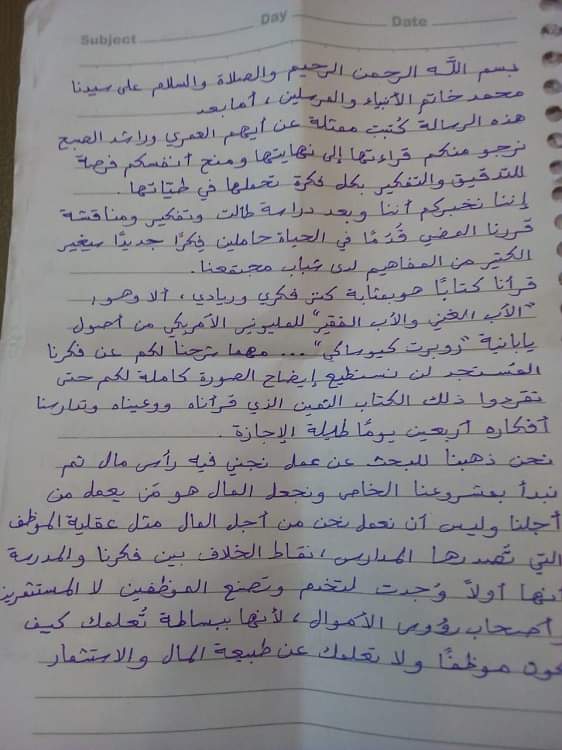 Subject Day Date
بسم اللّه الرحمن الرحيم والصلاة والسلام على سيدنا
محمد خاتم الأنبياء والمرسلين ، أما بعد
هذه الرسالة كُتبت ممثلة عن أيهم العمري وراشد الصبح
نرجو منكم قراءتها إلى نهايتها ومنح أنفسكم فرصة
للتدقيق والتفكير بكل فكرة تحملها في طيّاتها .
إننا نخبركم أننا وبعد دراسة طالت وتفكير ومناقشة
قررنا المضي قُدمًا في الحياة حاملين فِكرًا جديدًا سيغير
الكثير من المفاهيم لدى شباب مجتمعنا .
قرأنا كتابًا هو بمثابة كنز فكري وريادي ، ألا وهو :
"الأب الغني والأب الفقير" للمليونير الأمريكي من أصول
يابانية "روبرت كيوساكي" ... مهما شرحنا لكم عن فكرنا
المُستجد لن نستطيع إيضاح الصورة كاملة لكم حتى
تقرءوا ذلك الكتاب الثمين الذي قرأناه ووعيناه وتدارسنا
أفكاره أربعين يومًا طيلة الإجازة .
نحن ذهبنا للبحث عن عمل نجني فيه رأس مال ثم
نبدأ بمشروعنا الخاص ونجعل المال هو مَن يعمل من
أجلنا وليس أن نعمل نحن من أجل المال مثل عقلية الموظف
التي تُصدرها المدارس ، نقاط الخلاف بين فكرنا والمدرسة
أنها أولاً وُجدت لتخدم وتصنع الموظفين لا المستثمرين
وأصحاب رؤوس الأموال ، لأنها ببساطة تُعلمك كيف
تكون موظفًا ولا تعلمك عن طبيعة المال والاستثمار